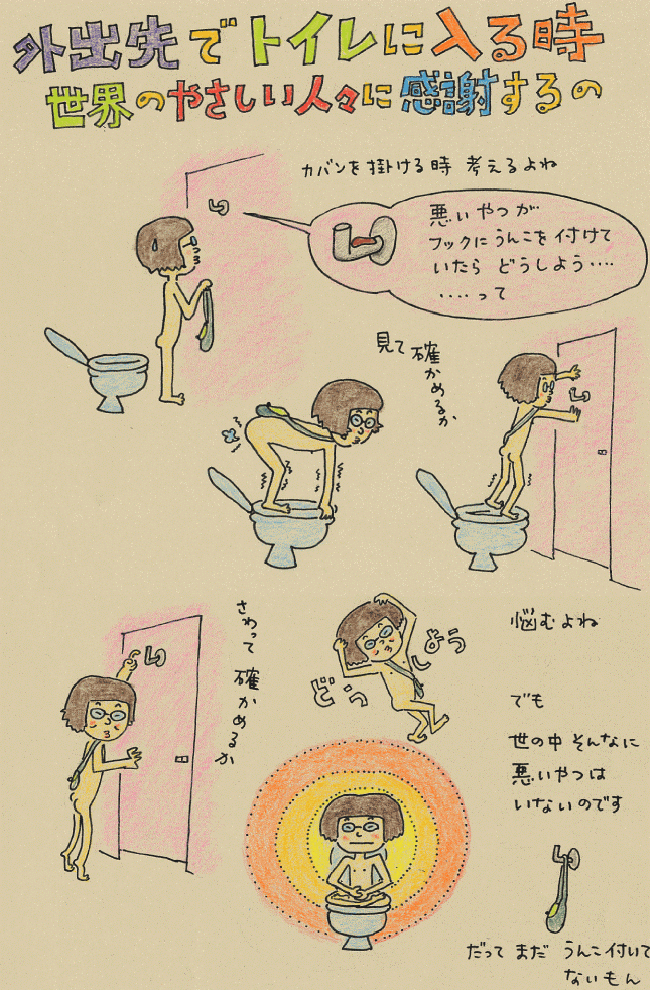 外出先でトイレに入る時
世界のやさしい人々に感謝するの
カバンを掛ける時 考えるよね
悪いやつが
フックにうんこを付けて
いたら どうしよう‥‥
‥‥って
見て確かめるか
さわって確かめるか
どう
しよう
悩むよね
でも
世の中 そんなに
悪いやつは
いないのです
だって まだ うんこ付いて
ないもん